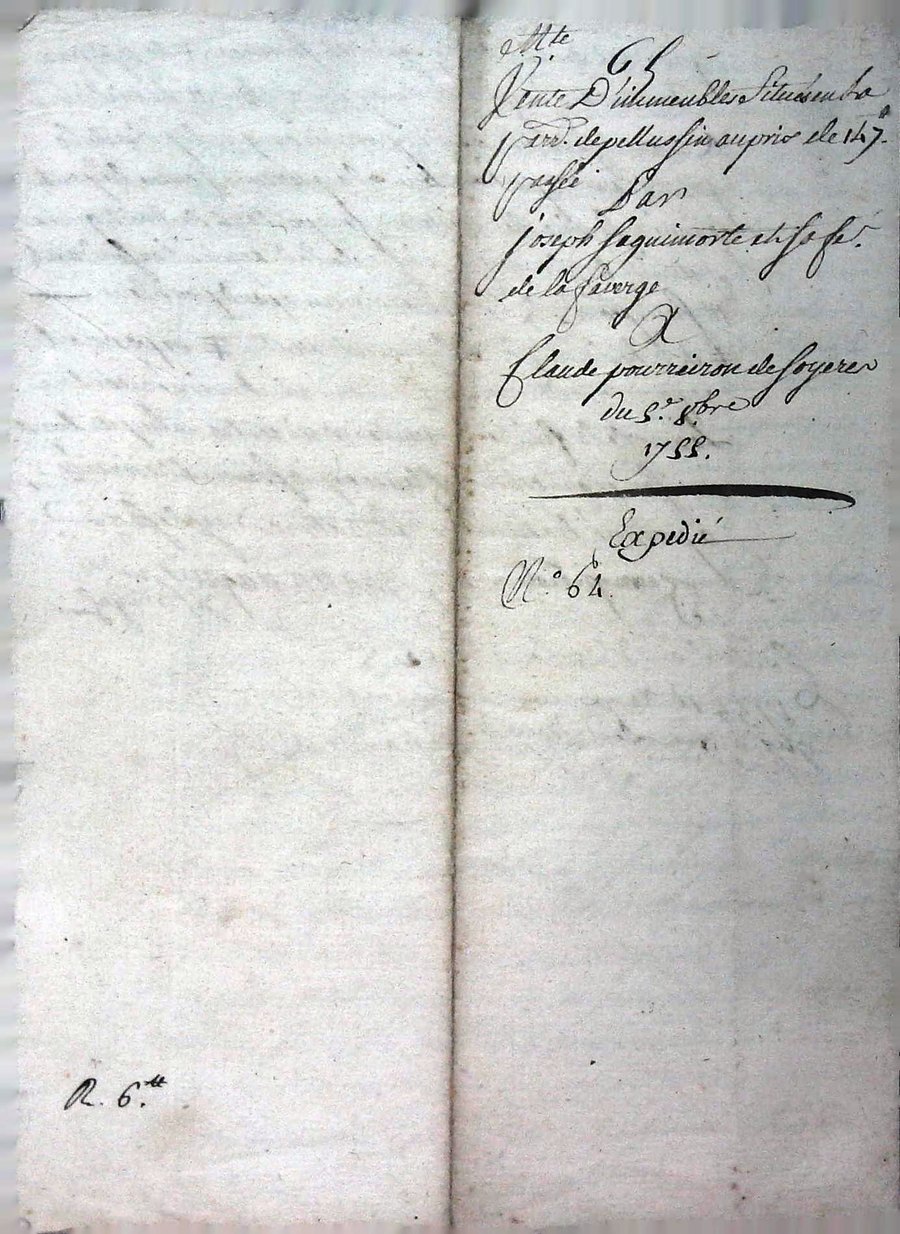 Mte
Vente D'immeubles Situés en La
parr. de pellussin au prix de 147.tt
passée
Par
joseph Seguimorte et sa fe.
de la faverge
A
Claude pourreiron de Soyeres
du 5.e 8bre
1755.
Expedié
N.o 64.
R. 6.tt